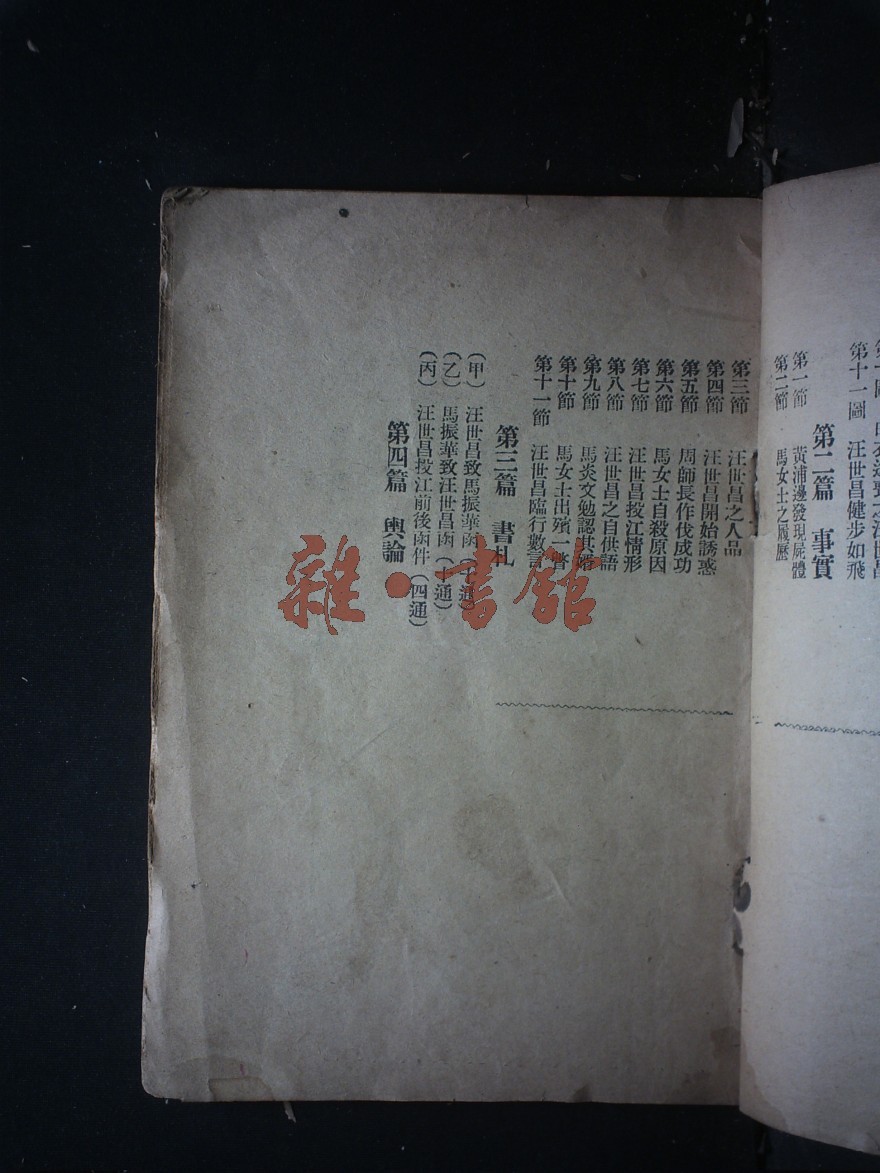 十一圖　汪世昌健步如飛
第二篇　事實
第一節　黃浦邊發現屍體
第二節　馬女士之履歷
第三節　汪世昌之人品
第四節　汪世昌開始誘惑
第五節　周師長作伐成功
第六節　馬女士自殺原因
第七節　汪世昌投江情形
第八節　汪世昌之自供語
第九節　馬炎文勉認其婿
第十節　馬女士出殯一瞥
第十一節　汪世昌臨行數言
第三篇　書札
（甲）　汪世昌致馬振華函　通）
（乙）　馬振華致汪世昌函（十通）
（丙）　汪世昌投江前後函件（四通）
第四篇　輿論
雜·書館